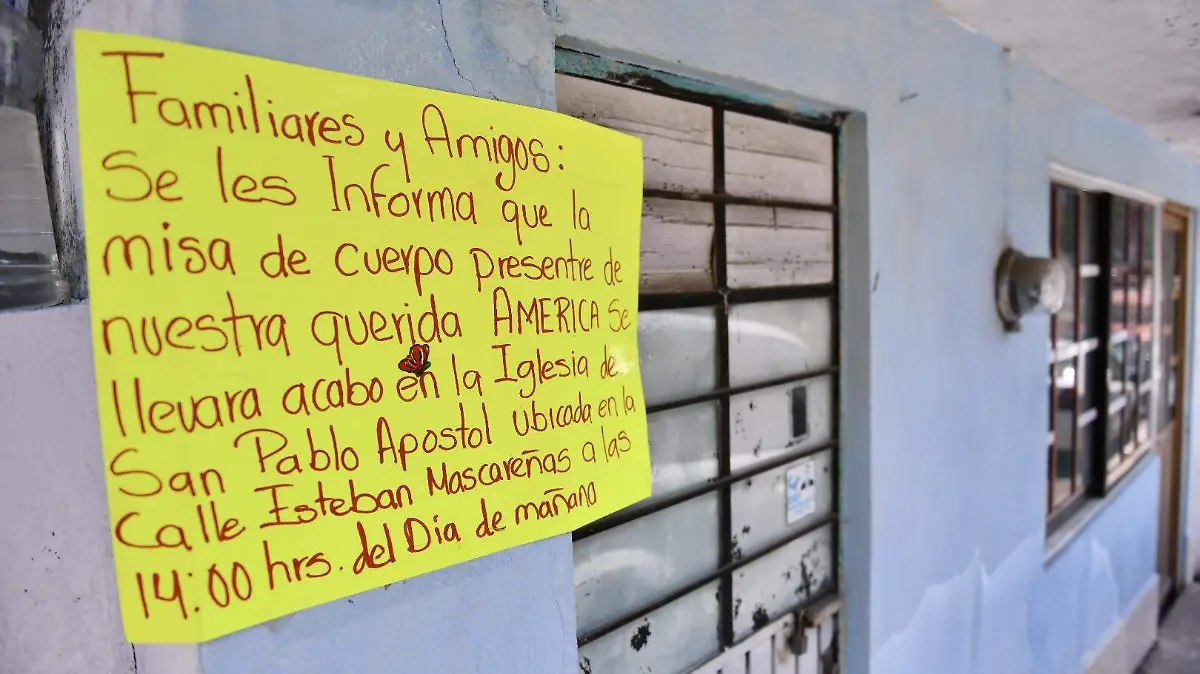 Familiares y Amigos:
Se les Informa que la
misa de cuerpo presentre de
nuestra querida AMERICA Se
llevara acabo en la Iglesia de
San Pablo Apostol ubicada en la
Calle Esteban Mascareñas a las
14:00 hrs. del Día de mañana